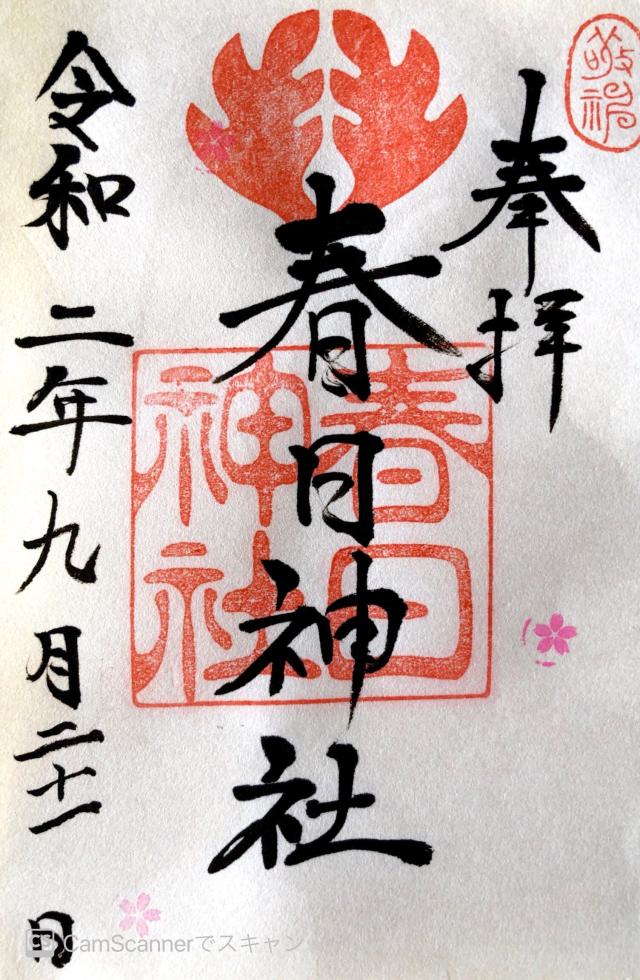 敬神
奉拝
春日神社
春日神社
令和二年九月二十一日
CS CamScannerでスキャン